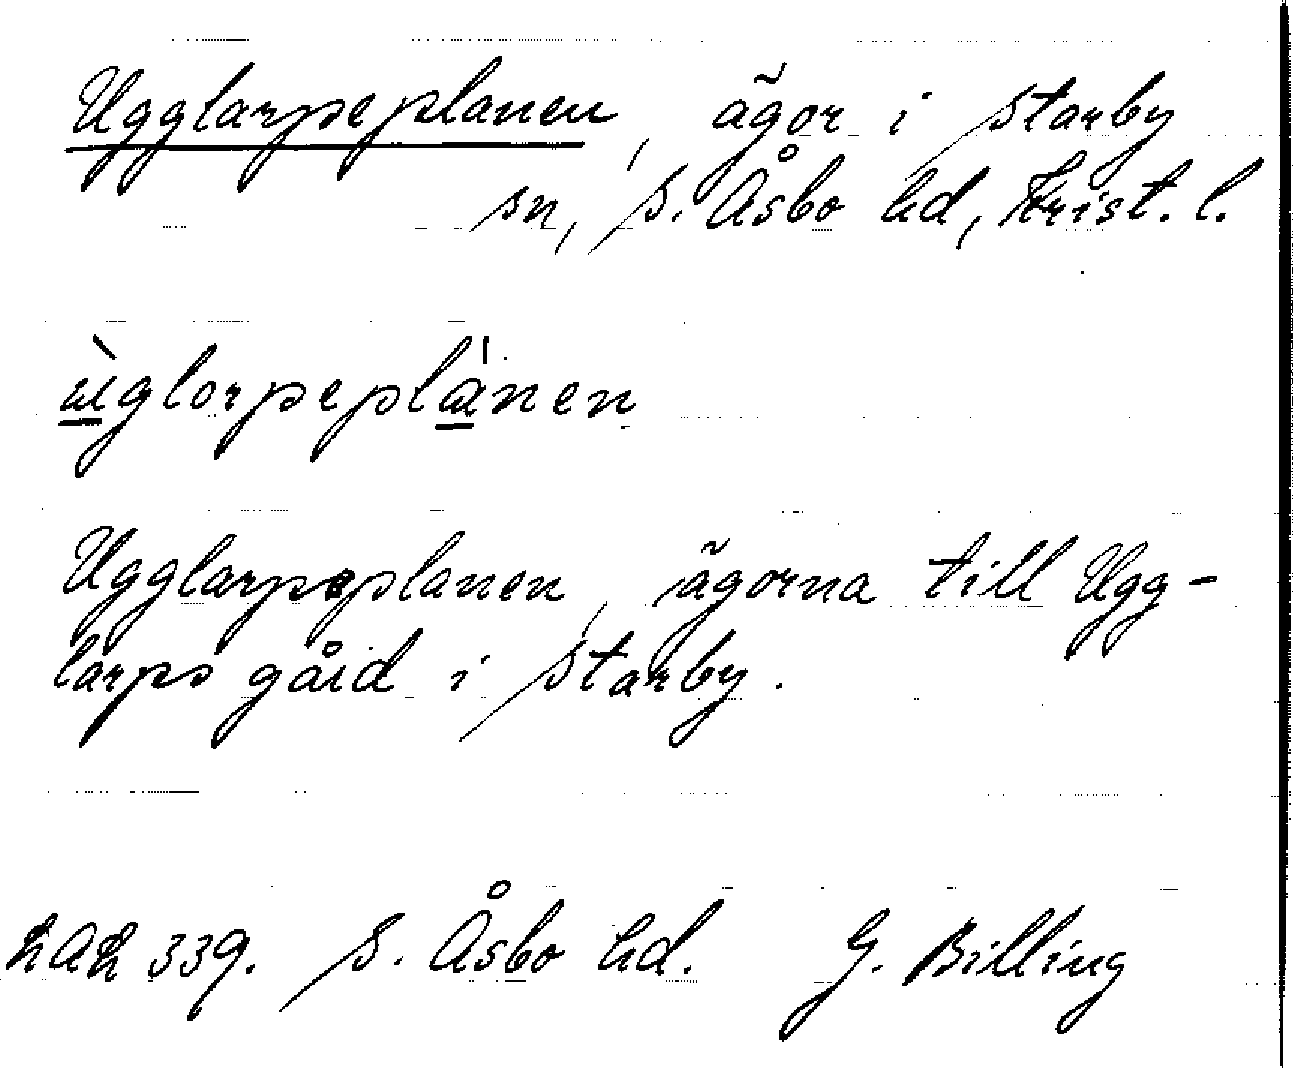 Ugglarpeplanen, ägor i Starby
sn, S. Åsbo hd, Krist. l.
ùglorpeplánen
Ugglarpeplanen, ägorna till Ugg-
larps gård i Starby.
339. S. Åsbo hd. G. Billing